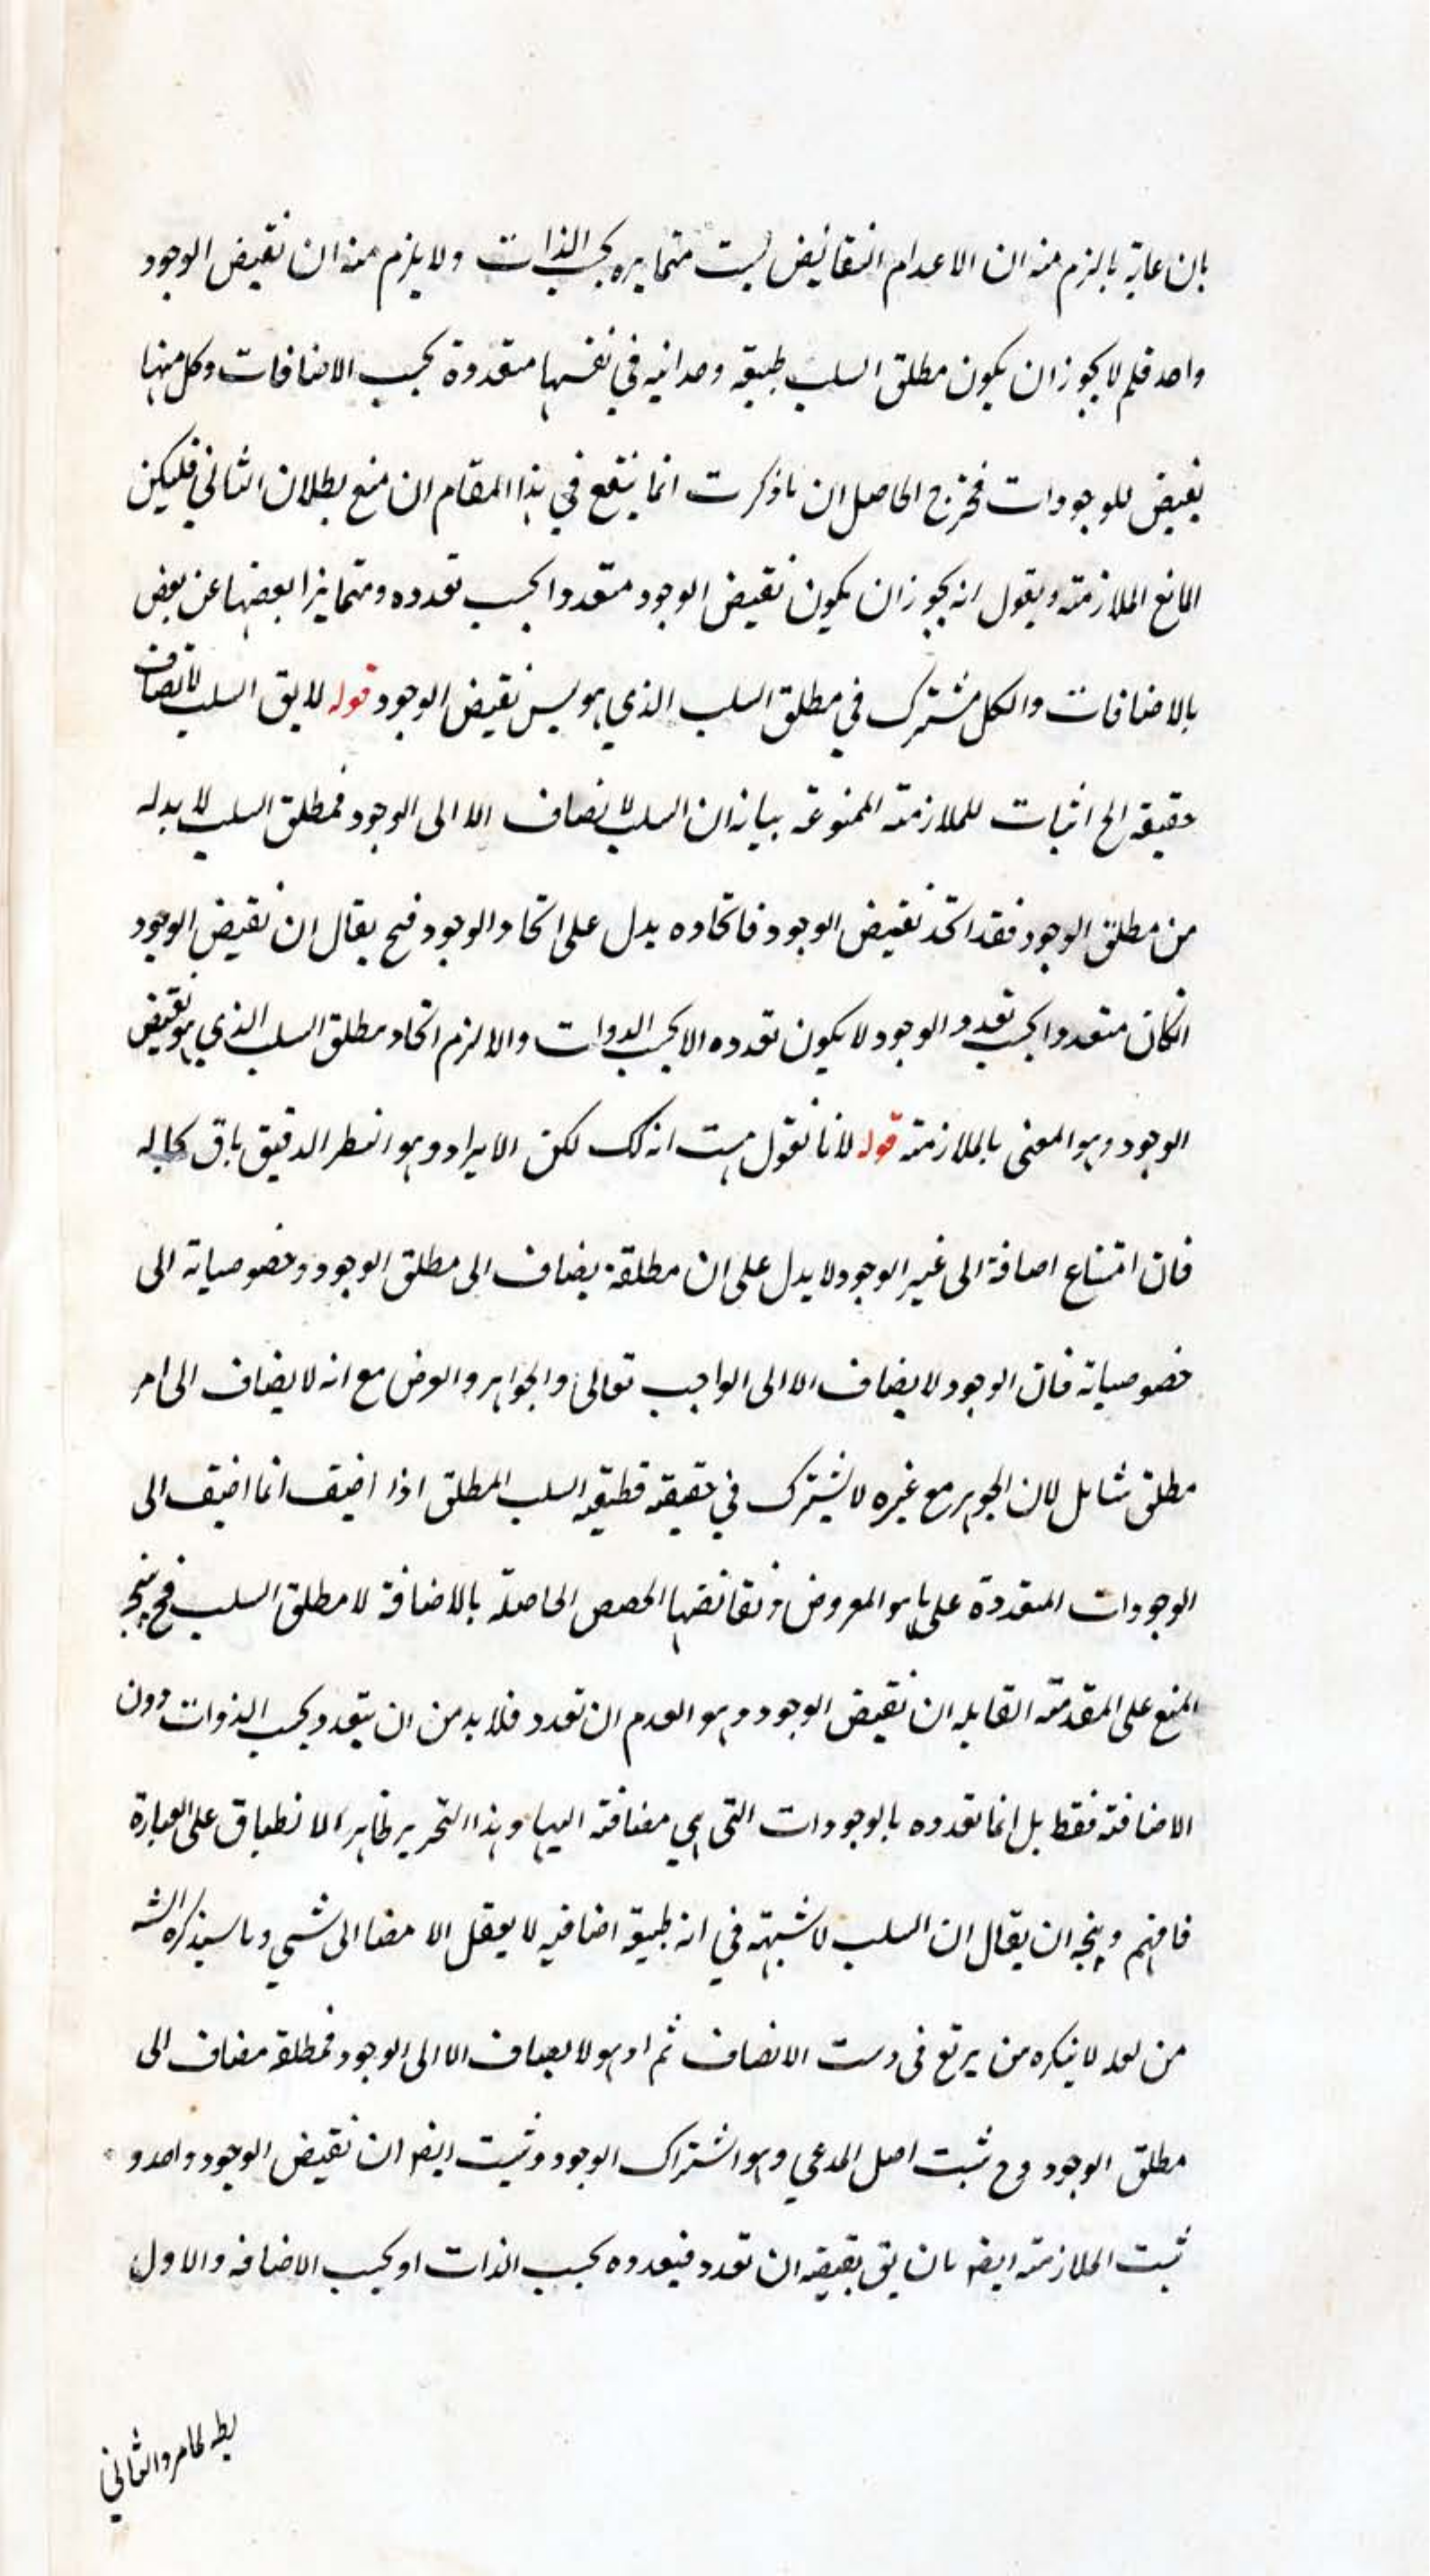 بان غاية ما لزم منه ان الاعدام النقائض ليست متمايزه بحسب الذات ولا يلزم منه ان نقيض الوجود
واحد فلم لا يجوز ان يكون مطلق السلب طبيعة وحدانيه في نفسها متعددة بحسب الاضافات وكل منها
نقيض للوجودات فخرج الحاصل ان ما ذكرت انما ينفع في هذا المقام ان منع بطلان الثاني فليكن
المانع الملازمة ويقول انه يجوز ان يكون نقيض الوجود متعددا بحسب تعدده ومتمايزا بعضها عن بعض
بالاضافات والكل مشترك في مطلق السلب الذي هو ليس نقيض الوجود قوله لا يق السلب لا يضاف
حقيقة الخ اثبات للملازمة الممنوعة بيانه ان السلب لا يضاف الا الى الوجود فمطلق السلب لا بد له
من مطلق الوجود فقد اتحد نقيض الوجود فاتحاده يدل على اتحاد الوجود فح يقال ان نقيض الوجود
انكان متعددا بحسب تعدد الوجود لا يكون تعدده الا بحسب الذوات والا لزم اتحاد مطلق السلب الذي هو نقيض
الوجود وهو المعنى بالملازمة قوله لانا نقول هب انه كك لكن الايراد وهو النظر الدقيق باق بحاله
فان امتناع اضافة الى غير الوجود لا يدل على ان مطلقه يضاف الى مطلق الوجود وخصوصياته الى
خصوصياته فان الوجود لا يضاف الا الى الواجب تعالى والجواهر والعرض مع انه لا يضاف الى امر
مطلق شامل لان الجوهر مع غيره لا يشترك في حقيقة فطبيعة السلب المطلق اذا اضيف انما اضيف الى
الوجودات المتعددة على ما هو المعروض ونقائضها الحصص الحاصلة بالاضافة لا مطلق السلب فح يتجه
المنع على المقدمة القابله ان نقيض الوجود وهو العدم ان تعدد فلا بد من ان يتعدد بحسب الذوات دون
الاضافة فقط بل انما تعدده بالوجودات التي هي مضافة اليها وهذا التحرير ظاهر الانطباق على العبارة
فافهم ويتجه ان يقال ان السلب لا شبهة في انه طبيعة اضافيه لا يعقل الا مضا الى شيء وما سيذكره الشه
من بعد لا ينكره من يرتع في دست الانصاف ثم اذ هو لا يضاف الا الى الوجود فمطلقه مضاف الى
مطلق الوجود وح ثبت اصل المدعي وهو اشتراك الوجود وثبت ايضه ان نقيض الوجود واحد و
ثبت الملازمة ايضه بان يق نقيضه ان تعدد فتعدده بحسب الذات او بحسب الاضافه والاول
بط لما مر والثاني